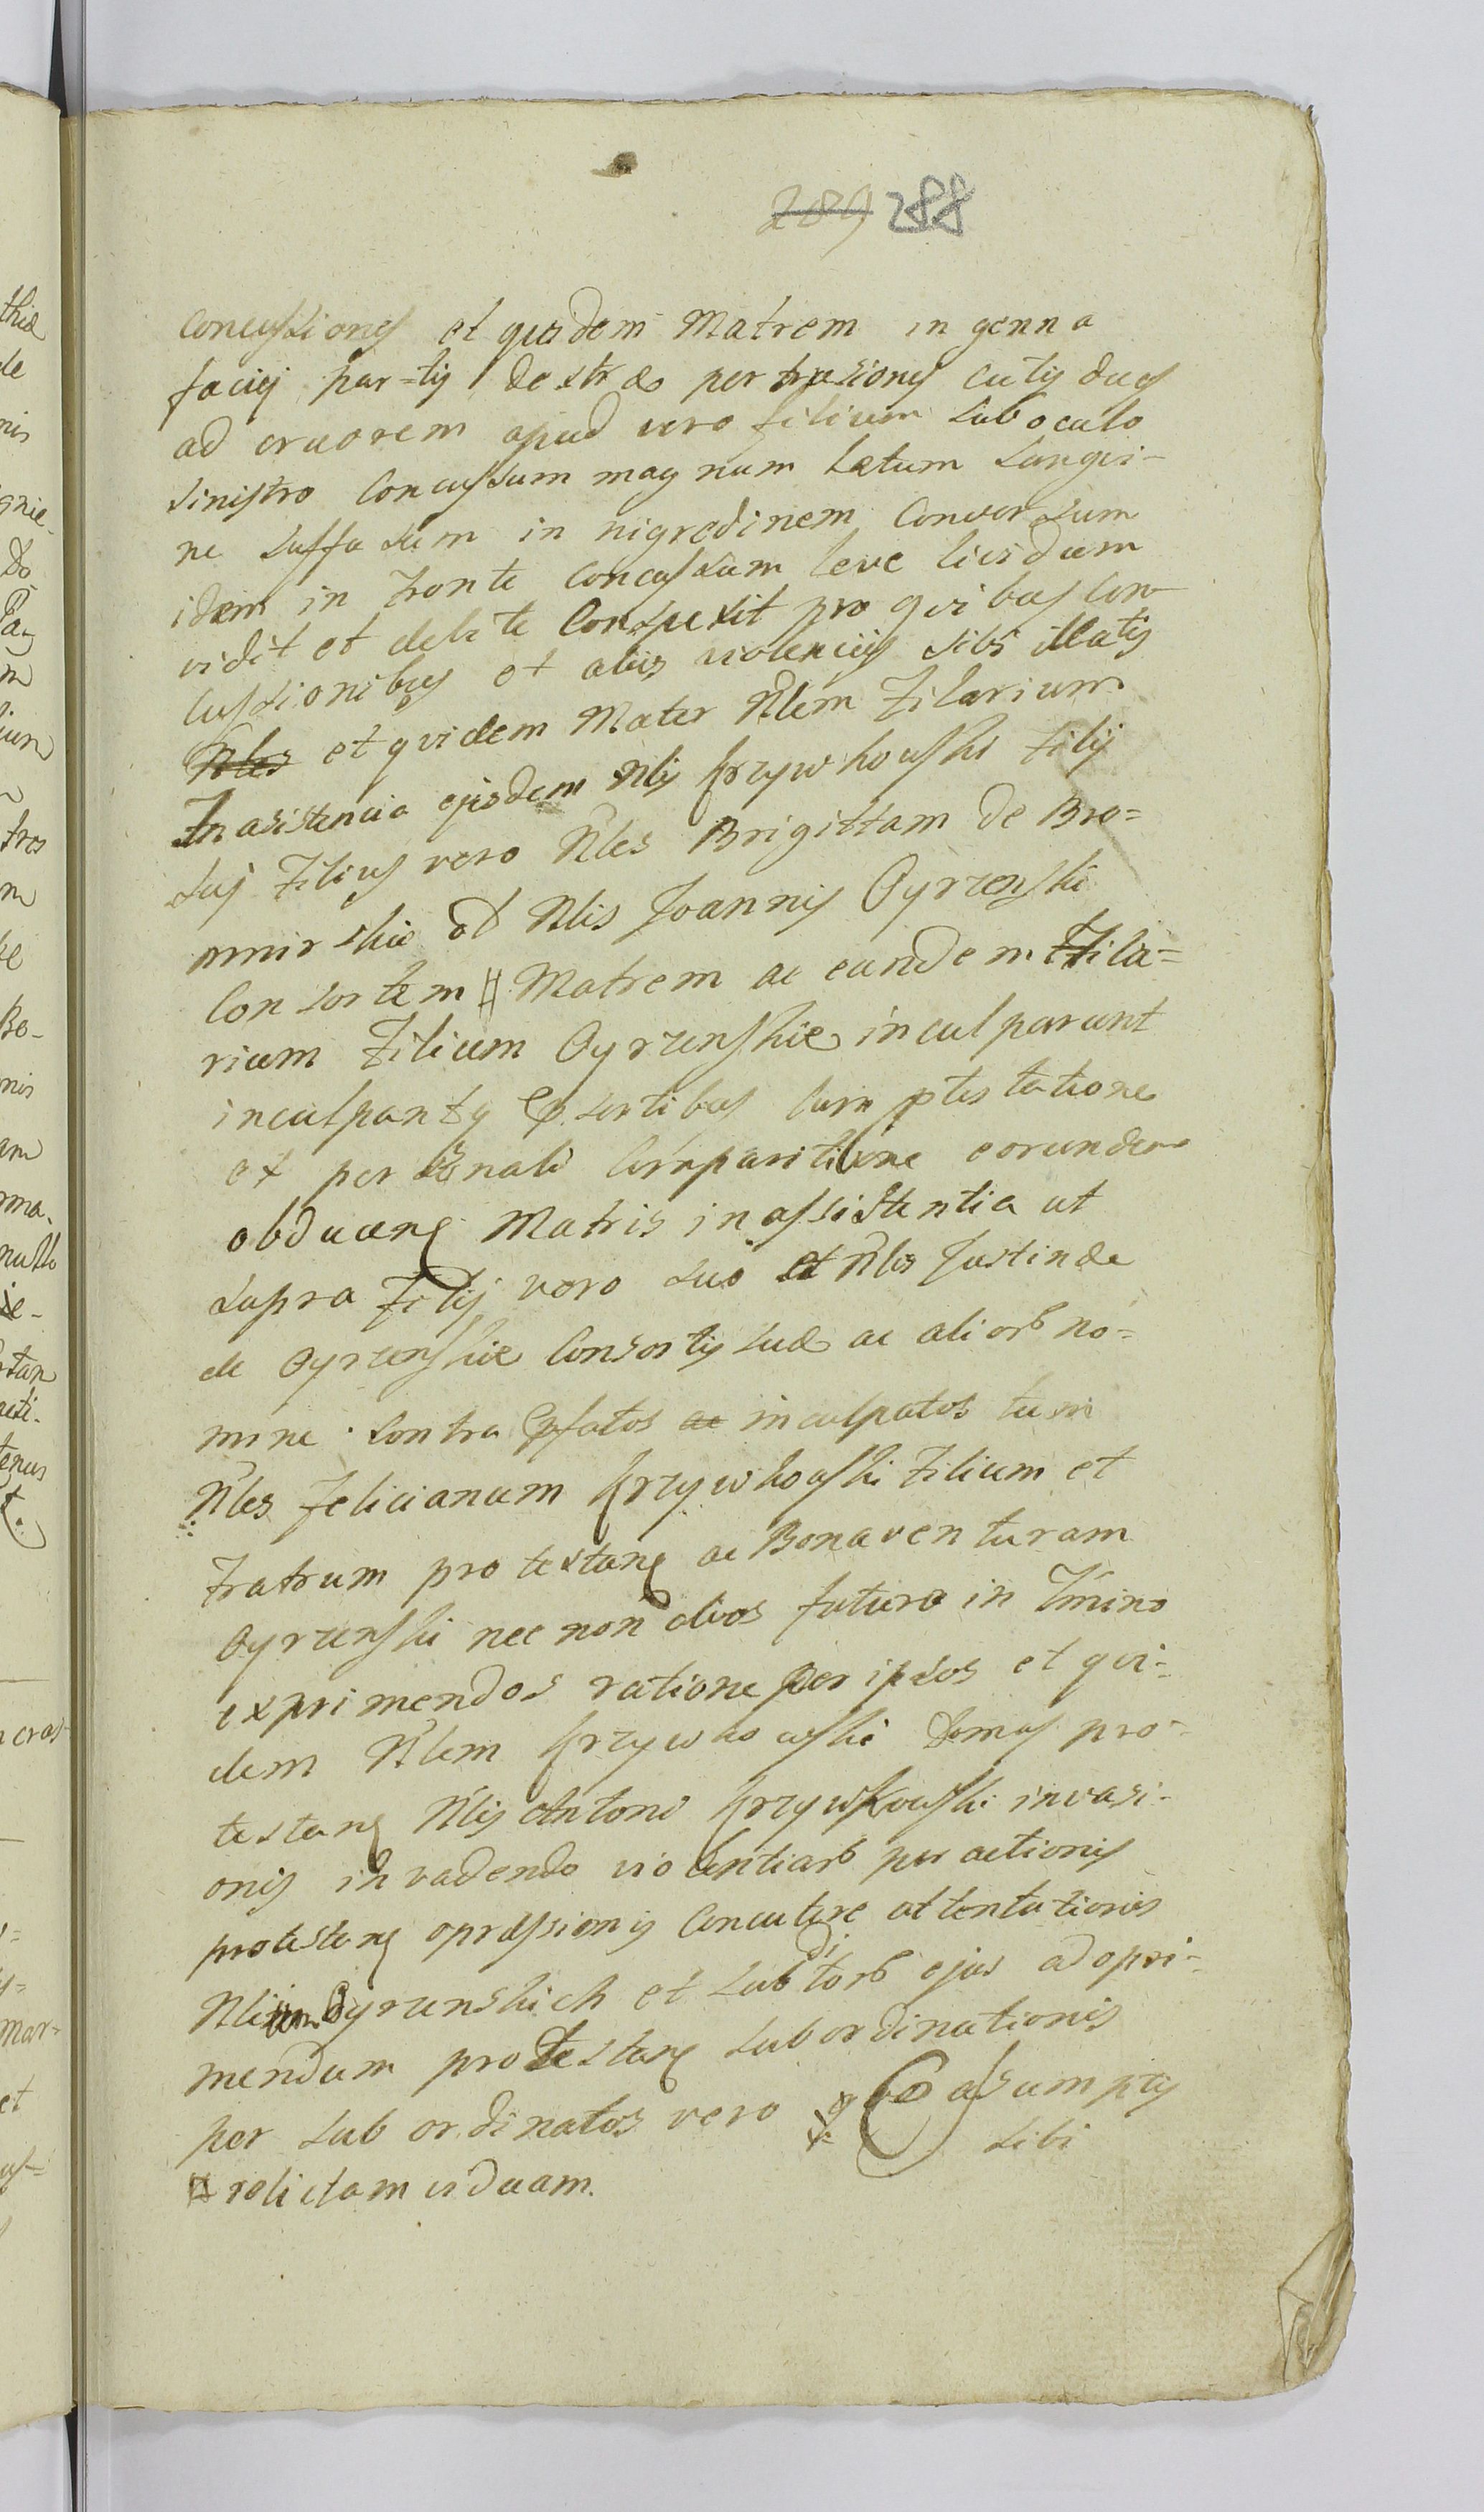 289 288
concussiones et quidem Matrem in genna
faciej par=tis dextrae per trusiones cutis duas
ad cruorem apud vero filium sub oculo
sinistro concussum magnum latum sangvi-
ne suffusum in nigredinem conversum
idem in fronte concussum leve lividum
vidit et debite conspexit pro qvibus con-
cussionibus et aliis violenciis sibi illatis
Nles et qvidem Mater Nlem Filarium
In asistencia ejusdem Nlis Krzywkowski filij
sui Filius vero Nles Brigittam de Bro=
mirskie ol Nlis Joannis Oyrzenski
Consortem # Matrem ac eundem Hila=
rium Filium Oyrzenskie inculparunt
inculpantq sortibus cum ptestatione
et personali comparitione eorundem
obducen Matris in assistentia ut
supra Filij vero suo et Nles Justinae
de Oyrzenskie Consortis suae ac alior no=
mine contra pfatos ac inculpatos tum
Nles Felicianum Krzywkowski Filium et
Fratrum protestan ac Bonaventuram
Oyrzenski nec non alios futuro in Tmino
exprimendos ratione per ipsos et qvi=
dem Nlem Krzywkowski Domus pro=
testan Nlis Antoni Krzywkowski invasi-
onis invadendo violentiar peractionis
protestan opressionis concutere attentationis
Nlium Oyrzenskich et subditor ejus ad opri-
mendum protestan subordinationis
per subordinatos vero asumptis
sibi
# relictam viduam.